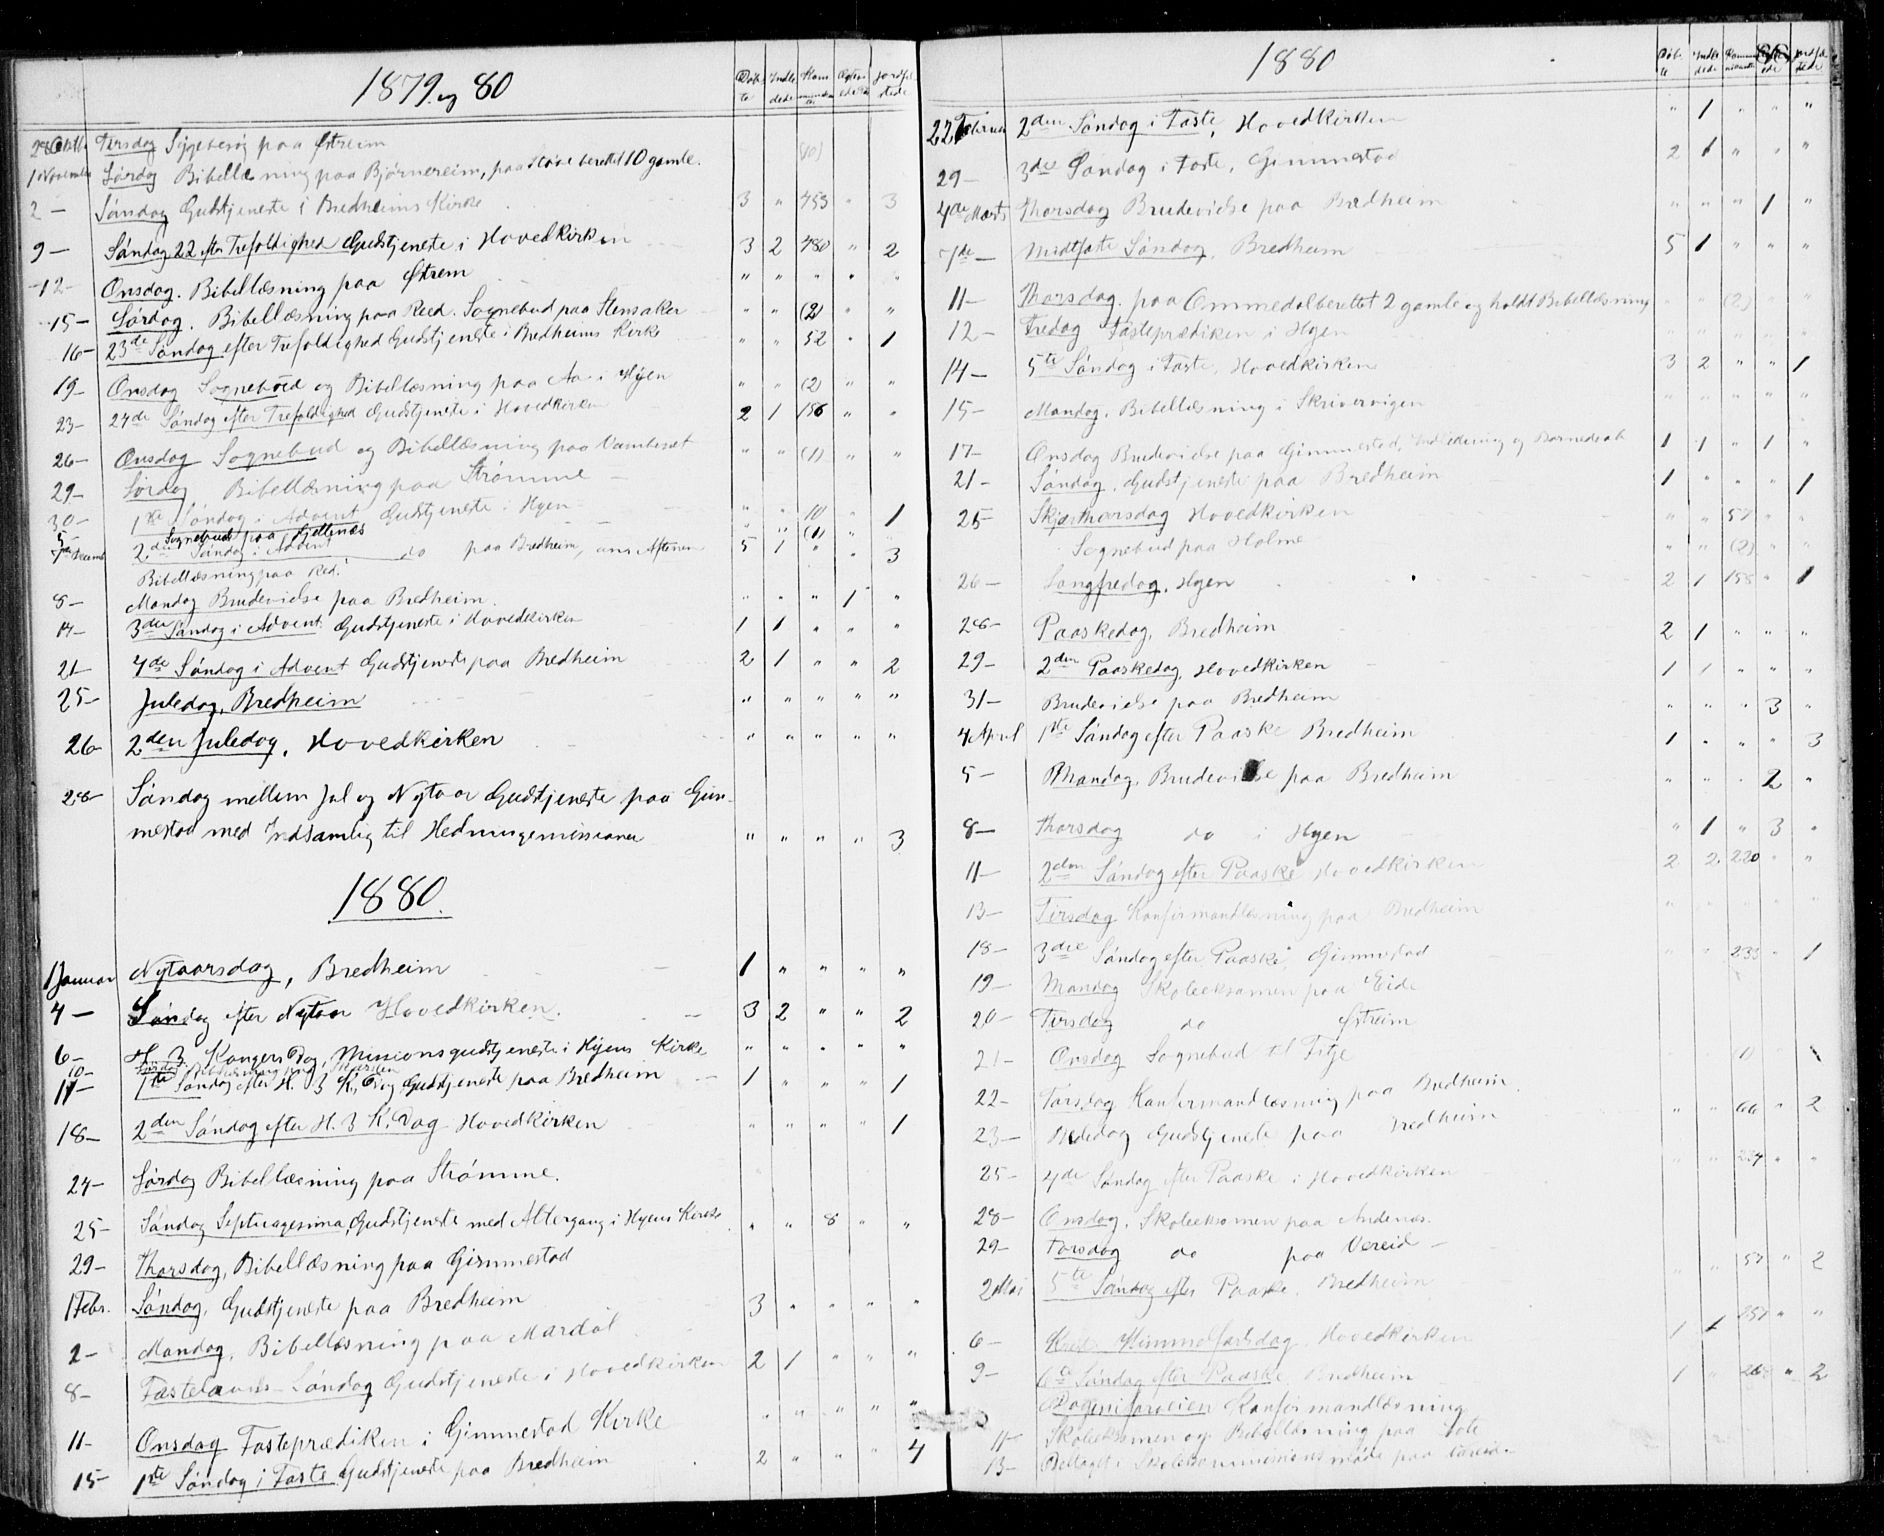 1879 og 80
Døbte Indledede Kommunikanter Ægteviede Jordfæstede
28 Oktbr Tirsdag Sygebesøg paa Østreim
1 November Lørdag Bibellæsning paa Bjørnereim, paa berettet 10 gamle. (10)
2 — Søndag Gudstjeneste i Bredheims Kirke 3 " 453 " 3
9 — Søndag 22 efter Trefoldighed Gudstjeneste i Hovedkirken 3 2 480 " 2
12 — Onsdag. Bibellæsning paa Østrem " " " " "
15 — Lørdag. Bibellæsning paa Reed. Sognebud paa Stensaker " " (2) " "
16 — 23de Søndag efter Trefoldighed Gudstjeneste i Bredheims Kirke " " 52 " 1
19 — Onsdag Sognebud og Bibellæsning paa Aa i Hyen " " (2) " "
23 — 24de Søndag efter Trefoldighed Gudstjeneste i Hovedkirken 2 1 156 " "
26 — Onsdag Sognebud og Bibellæsning paa " " (1) " "
29 — Lørdag Bibellæsning paa Strømme —
30 — 1ste Søndag i Advent Gudstjeneste i Hyen " " 10 " 1
5 — Sognebud paa Gjellenæs " " (1) " "
7de Decemb 2den Søndag i Advent do paa Bredheim, om Aftenen 5 1 " " 3
Bibellæsning paa Red.
8 — Mandag Brudevielse paa Bredheim. " " " 1 "
14 — 3die Søndag i Advent Gudstjeneste i Hovedkirken 1 1 " " "
21 — 4de Søndag i Advent Gudstjeneste paa Bredheim 2 1 " " 2
25 — Juledag, Bredheim " " " " "
26 — 2den Juledag, Hovedkirken " " " " "
28 — Søndag mellem Jul og Nytaar Gudstjeneste paa Gim-
mestad med Indsamlig til Hedningemissionen " " " " 3
1880.
1 Januar Nytaarsdag, Bredheim 1 " " " "
4 — Søndag efter Nytaar Hovedkirken. 3 2 " " 2
6 — H. 3 Kongers Dag, Missionsgudstjeneste i Hyens Kirke " " " " "
10 — Lørdag Bibellæsning paa
11 — 1ste Søndag efter H. 3 K. Dag Gudstjeneste paa Bredheim 1 " " " 1
18 — 2den Søndag efter H. 3 K. Dag Hovedkirken " " " " 1
24 — Lørdag Bibellæsning paa Strømme.
25 — Søndag Septuagesima Gudstjeneste med Altergang i Hyens Kirke " " 8 " "
29 — Thorsdag, Bibellæsning paa Gimmestad
1 Febr. Søndag, Gudstjeneste paa Bredheim 3 " " " "
2 — Mandag, Bibellæsning paa Mardøl
8 — Fastelavns-Søndag Gudstjeneste i Hovedkirken 2 1 " " "
11 — Onsdag Fasteprædiken i Gimmestad Kirke " " " " "
15 — 1ste Søndag i Faste Gudstjeneste paa Bredheim 2 " " " 4
1880
Døbte Indledede Kommunikante Jordfæstede
22 Februar 2den Søndag i Faste, Hovedkirken " 1 " " "
29 — 3die Søndag i Faste, Gimmestad 2 1 " " "
4de Marts Thorsdag Brudevielse paa Bredheim " " " 1 "
7de — Midtfaste Søndag, Bredheim 5 1 " " "
11 — Thorsdag. paa Ommedal berettet 2 gamle og holdt Bibellæsning " " (2) " "
12 — Fredag Fasteprædiken i Hyen " " " " "
14 — 5te Søndag i Faste, Hovedkirken 3 2 " " 1
15 — Mandag, Bibellæsning i Skrivervigen " " " " "
17 — Onsdag Brudevielse paa Gimmestad, Indledning og Barnedaab 1 1 " 1 "
21 — Søndag. Gudstjeneste paa Bredheim 1 " " " 1
25 — Skjærthorsdag Hovedkirken " " 57 " "
Sognebud paa Holme " " (2) " "
26 — Langfredag, Hyen 2 1 158 " 1
28 — Paaskedag, Bredheim 2 1 " " "
29 — 2den Paaskedag, Hovedkirken 1 1 " " "
31 — Brudevielse paa Bredheim " " " 3 "
4 April 1ste Søndag efter Paaske Bredheim 1 " " " 3
5 — Mandag, Brudevielse paa Bredheim " " " 2 "
8 — Thorsdag do i Hyen " 1 " 3 "
11 — 2den Søndag efter Paaske Hovedkirken 2 2 220 " "
13 — Tirsdag Konfirmandlæsning paa Bredheim " " " " "
18 — 3die Søndag efter Paaske Gimmestad " " 233 " 1
19 — Mandag Skoleeksamen paa Eide
20 — Tirsdag do Østreim
21 — Onsdag Sognebud til (1)
22 — Torsdag Konfirmandlæsning paa Bredheim.
23 — Bededag Gudstjeneste paa Bredheim " " 66 " 2
25 — 4de Søndag efter Paaske i Hovedkirken " " 234 " "
28 — Onsdag. Skoleeksamen paa Andenæs.
29 — Torsdag do paa Vereid —
2 Mai 5te Søndag efter Paaske, Bredheim " " 57 " 2
6 — Himmelfartsdag, Hovedkirken 1 1 257 " "
9 — 6te Søndag efter Paaske Bredheim 1 " 268 " 2
Dagen forveien Konfirmandlæsning
11 — Skoleeksamen og Bibellæsning paa
13 — Deltaget i Skolekommissionsmøde paa